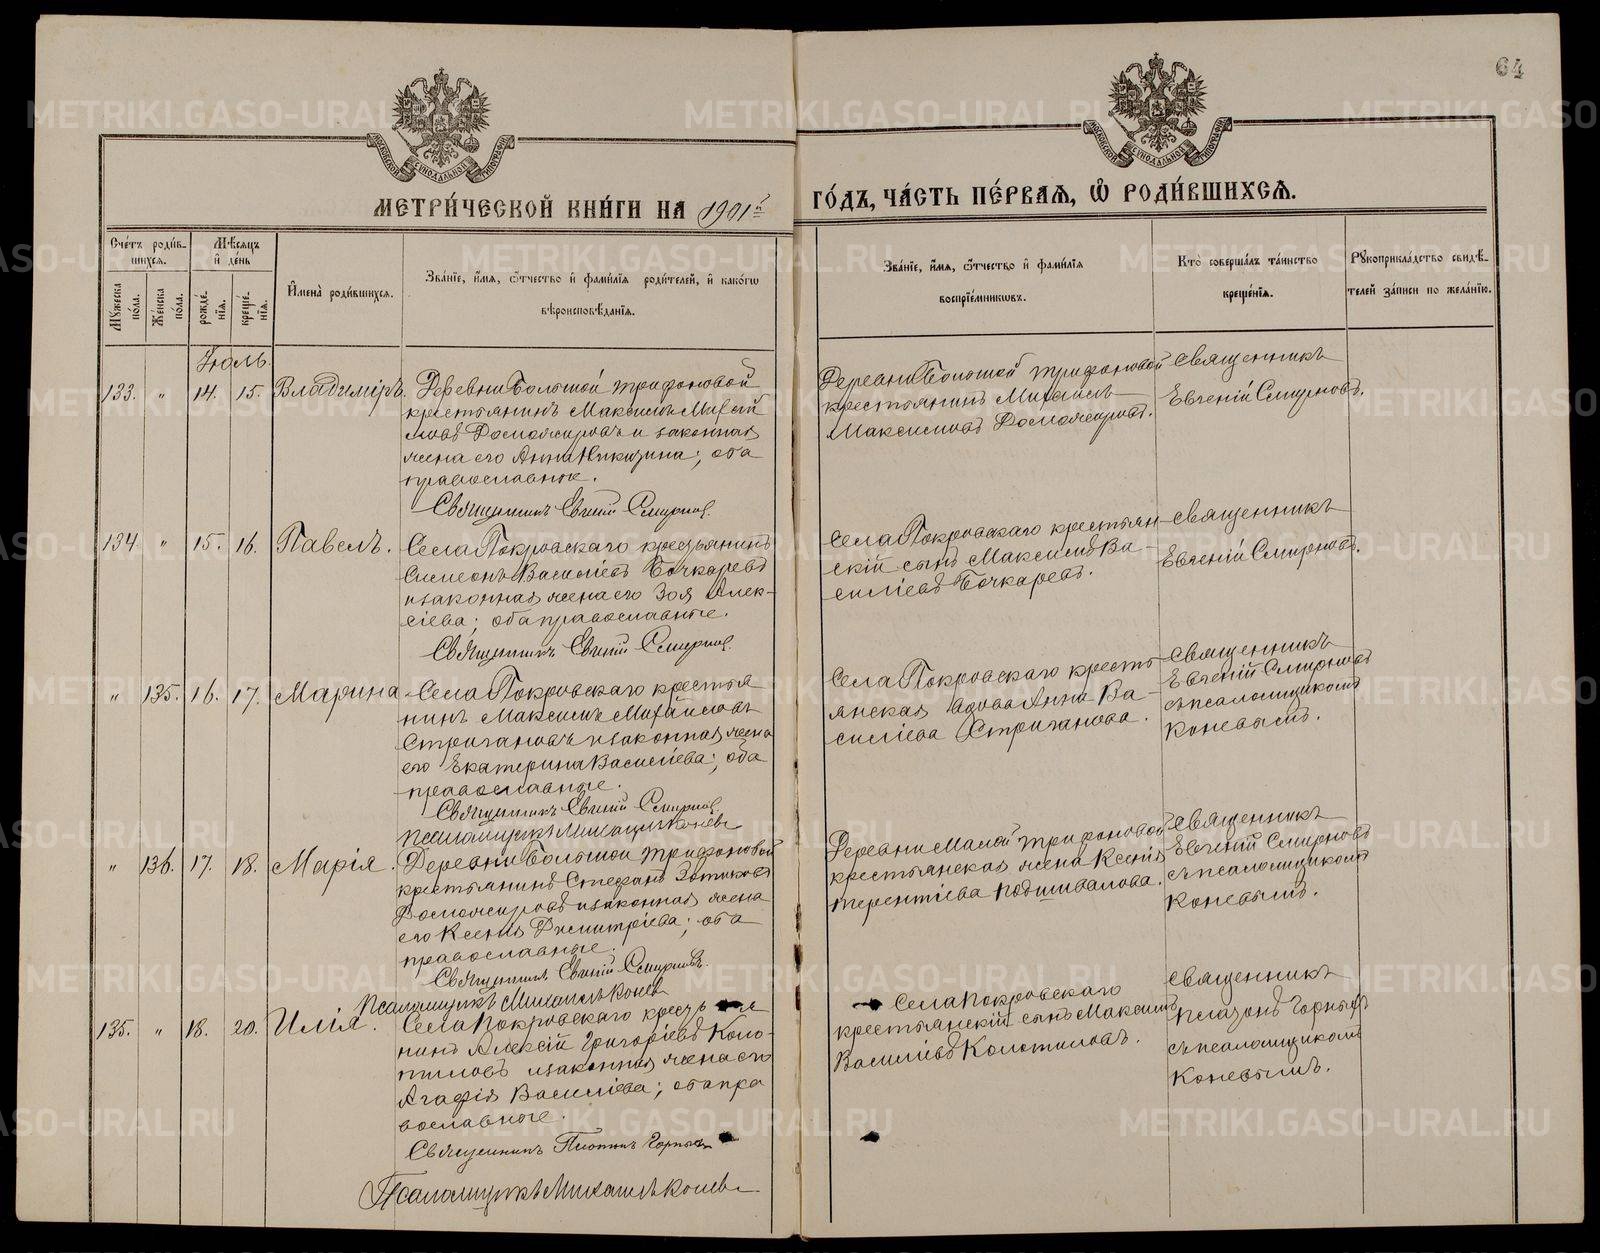 64
МОСКОВСКОЙ СѴНОДАЛЬНОЙ ТИПОГРАФІИ
МОСКОВСКОЙ СѴНОДАЛЬНОЙ ТИПОГРАФІИ
МЕТРИ́ЧЕСКОЙ КНИ́ГИ НА 1901й
ГО́ДЪ, ЧА́СТЬ ПЕ́РВАЯ, Ѽ РОДИ́ВШИХСѦ.
Сче́тъ роди́в-
шихсѧ.
Мꙋ́жеска по́ла.
Же́нска по́ла.
Мѣ́сѧцъ
и҆ де́нь
рожде́-нїѧ.
креще́-нїѧ.
И҆мена̀ роди́вшихсѧ.
Зва́нїе, и҆́мѧ, ѻ҆́тчество и҆ фами́лїѧ роди́телей, и҆ како́гѡ
вѣроисповѣ́данїѧ.
Зва́нїе, и҆́мѧ, ѻ҆́тчество и҆ фами́лїѧ
воспрїе́мникѡвъ.
Кто̀ соверша́лъ та́инство
креще́нїѧ.
Рꙋкоприкла́дство свидѣ́-
телей за́писи по жела́нїю.
Іюль.
133. " 14. 15. Владиміръ.
Деревни Большой Трифоновой
крестьянинъ Максимъ Михай
ловъ Доможировъ и законная
жена его Анна Никизина; оба
православные.
Священникъ Евгеній Смирновъ.
Деревни Большой Трифоновой
крестьянинъ Михаилъ
Максимовъ Доможировъ.
Священникъ
Евгеній Смирновъ.
134. " 15. 16. Павелъ.
Села Покровскаго крестьянинъ
Симеонъ Василіевъ Бочкаревъ
и законная жена его Зоя Алек-
сіева; оба православные.
Священникъ Евгеній Смирновъ.
Села Покровскаго крестьян-
скій сынъ Максимъ Ва-
силіевъ Бочкаревъ.
Священникъ
Евгеній Смирновъ.
" 135. 16. 17. Марина
Села Покровскаго крестья
нинъ Максимъ Михаиловъ
Стригановъ и законная жена
его Екатерина Василіева; оба
православные.
Священникъ Евгеній Смирновъ.
Псаломщикъ Михаилъ Коневъ
Села Покровскаго кресть-
янская вдова Анна Ва-
силіева Стриганова.
Священникъ
Евгеній Смирновъ
съ псаломщикомъ
Коневымъ.
" 136. 17. 18. Марія.
Деревни Большой Трифоновой
крестьянинъ Стефанъ Зотиковъ
Доможировъ и законная жена
его Ксенія Димитріева; оба
православные.
Священникъ Евгеній Смирновъ.
Псаломщикъ Михаилъ Коневъ
Деревни Малой Трифоновой
крестьянская жена Ксенія
Терентіева Подшивалова.
Священникъ
Евгеній Смирновъ
съ псаломщикомъ
Коневымъ.
135. " 18. 20. Илія.
Села Покровскаго кресть
нинъ Алексій Григоріевъ Коло-
тиловъ и законная жена его
Агафія Василіева; оба пра
вославные.
Священникъ Платонъ Горныхъ
Псаломщикъ Михаилъ Коневъ
Села Покровскаго
крестьянскій сынъ Максимъ
Василіевъ Колотиловъ.
Священникъ
Платонъ Горныхъ
съ псаломщикомъ
Коневымъ.
METRIKI.GASO-URAL.RU